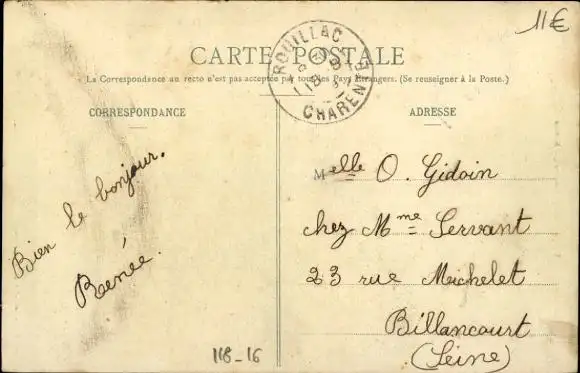 11€
CARTE POSTALE
La Correspondance au recto n'est pas acceptée par tous les Pays Étrangers. (Se renseigner à la Poste.)
ROUILLAC
CHARENTE
CORRESPONDANCE
ADRESSE
Bien le bonjour.
Renée.
Melle O. Gidoin
chez Mme Servant
23 rue Michelet
Billancourt
(Seine)
118-16